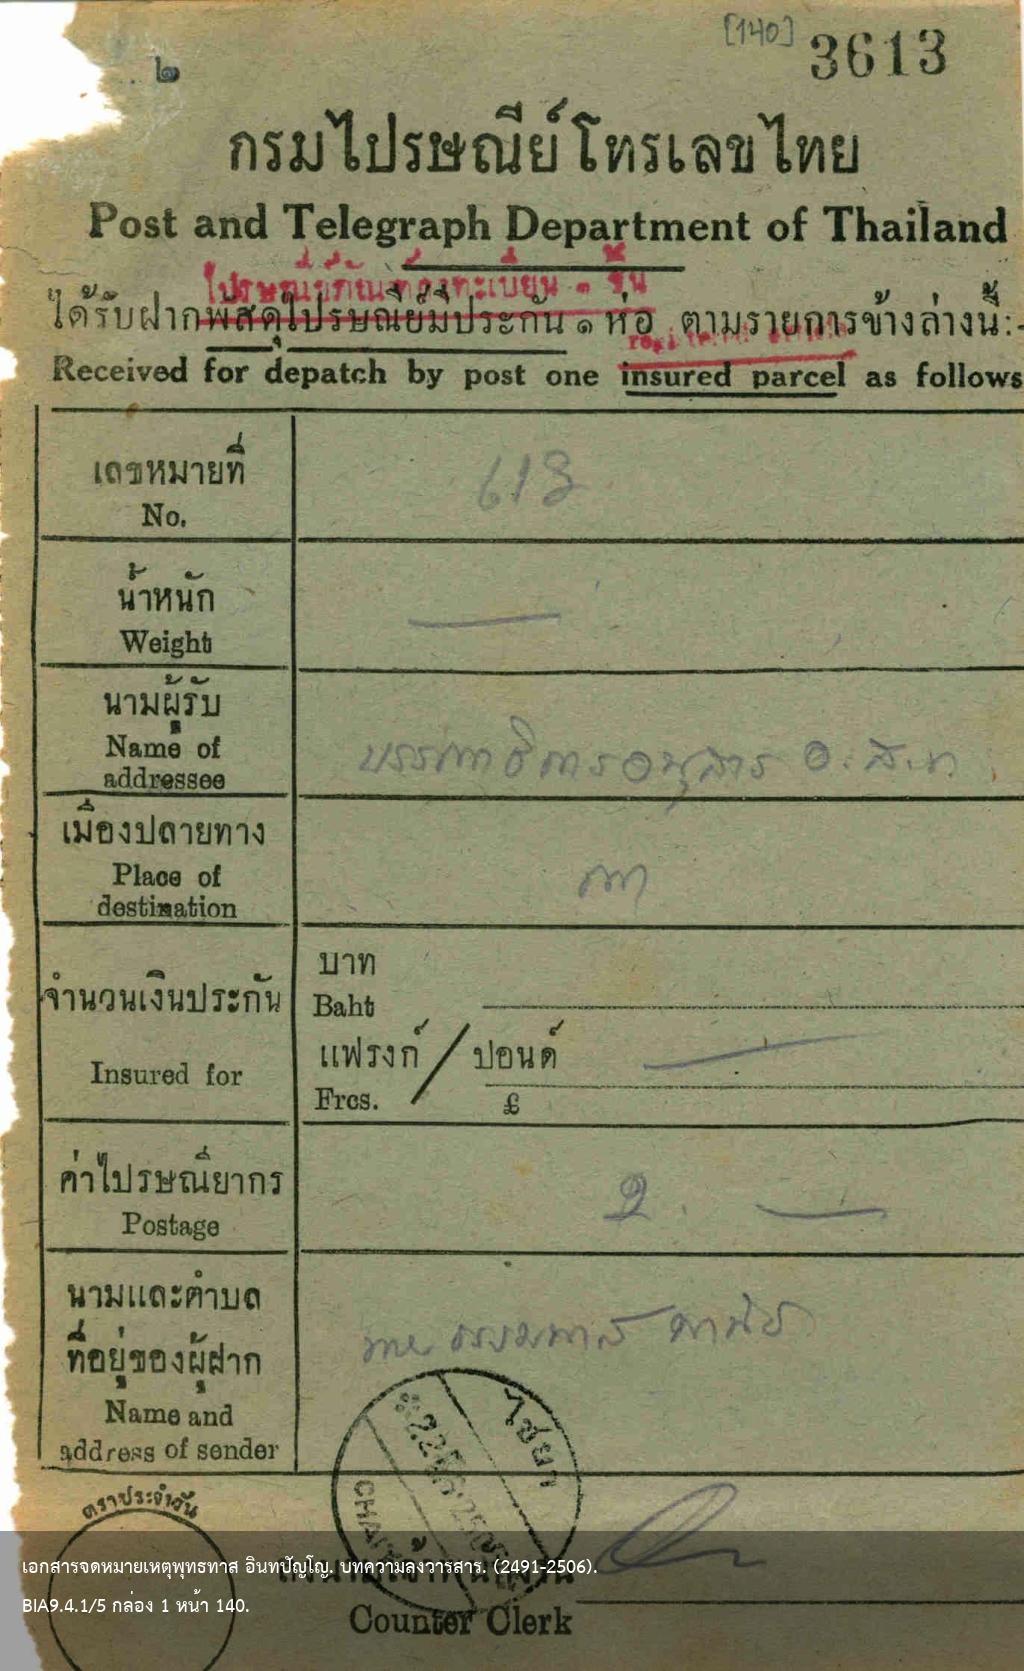 [140]
3613
๒
กรมไปรษณีย์โทรเลขไทย
Post and Telegraph Department of Thailand
ไปรษณีย์ภัณฑ์ลงทะเบียน ๑ ชิ้น
ได้รับฝากพัสดุไปรษณีย์มีประกัน ๑ ห่อ ตามรายการข้างล่างนี้:-
Received for depatch by post one insured parcel as follows
เลขหมายที่
No.
613
น้ำหนัก
Weight
นามผู้รับ
Name of
addressee
บรรณาธิการอนุสาร อ.ส.ท.
เมืองปลายทาง
Place of
destination
จำนวนเงินประกัน
Insured for
บาท
Baht
แฟรงก์ / ปอนด์
Frcs. £
ค่าไปรษณียากร
Postage
2. —
นามและตำบล
ที่อยู่ของผู้ฝาก
Name and
address of sender
ธรรมทาส พานิช
ไชยา
ตราประจำวัน
เอกสารจดหมายเหตุพุทธทาส อินทปัญโญ. บทความลงวารสาร. (2491-2506).
BIA9.4.1/5 กล่อง 1 หน้า 140.
Counter Clerk